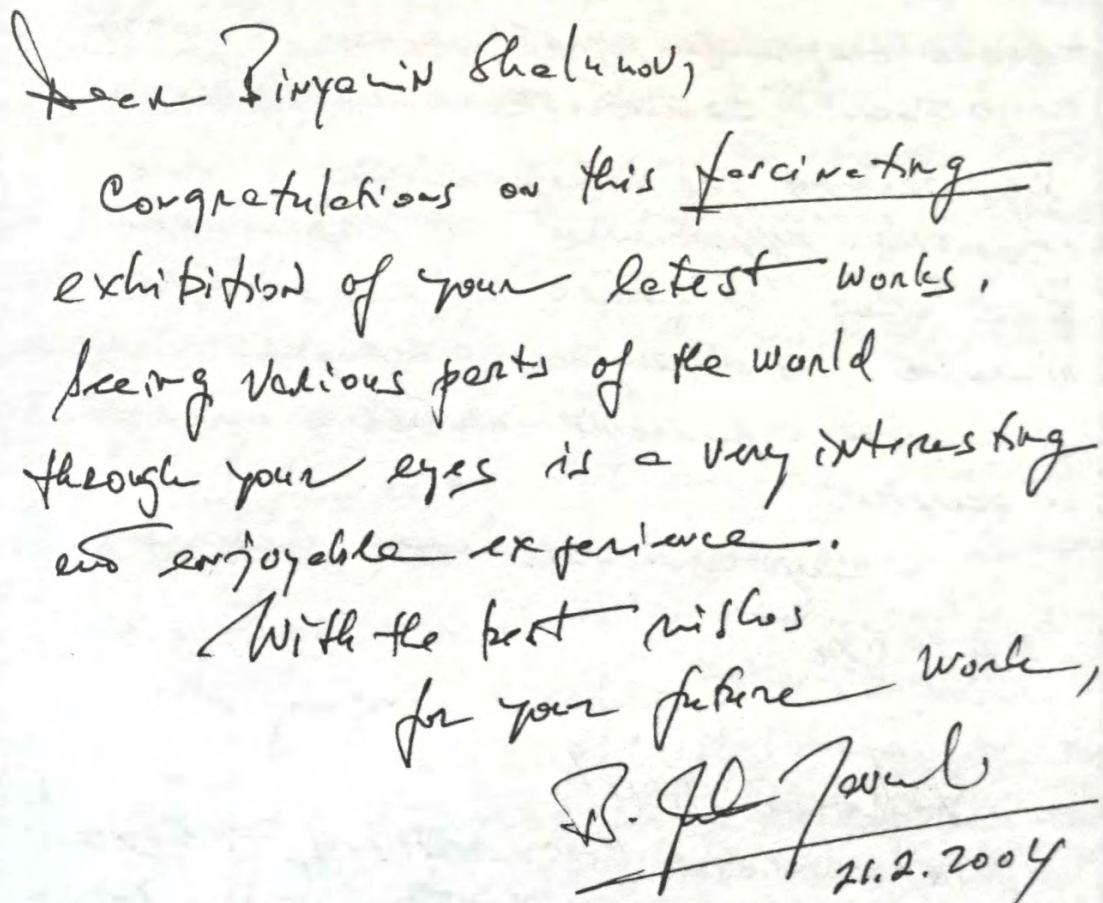 Dear Binyamin Shalumov,
Congratulations on this fascinating
exhibition of your latest works.
Seeing various parts of the world
through your eyes is a very interesting
and enjoyable experience.
With the best wishes
for your future work,
B.
21.2.2004